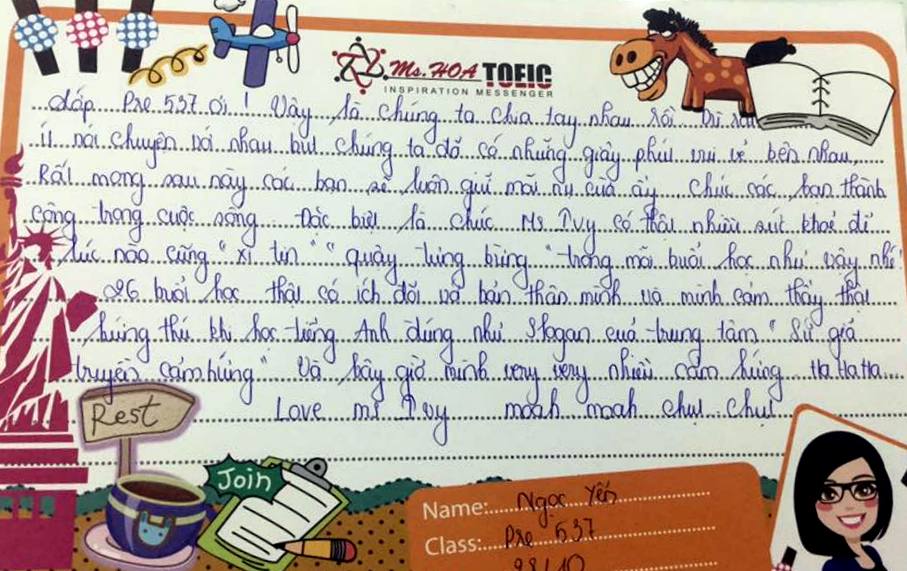 Ms. HOA TOEIC
INSPIRATION MESSENGER
Lớp Pre 537 ơi ! Vậy là chúng ta chia tay nhau rồi. Dù
ít nói chuyện với nhau but chúng ta đã có những giây phút vui vẻ bên nhau,
Rất mong sau này các bạn sẽ luôn giữ mãi nụ cười ấy. Chúc các bạn thành
công trong cuộc sống. Đặc biệt là chúc Ms Ivy có thật nhiều sức khoẻ để
lúc nào cũng "xì tin" "quậy tưng bừng" trong mỗi buổi học như vậy nhé
26 buổi học thật có ích đối với bản thân mình và mình cảm thấy thật
hứng thú khi học tiếng Anh đúng như Slogan của trung tâm "Sứ giả
truyền cảm hứng". Và bây giờ mình very very nhiều cảm hứng. Ha Ha Ha...
Love ms Ivy moah moah chụt chụt
Rest
Join
Name: Ngọc Yến
Class: Pre 537
28/10